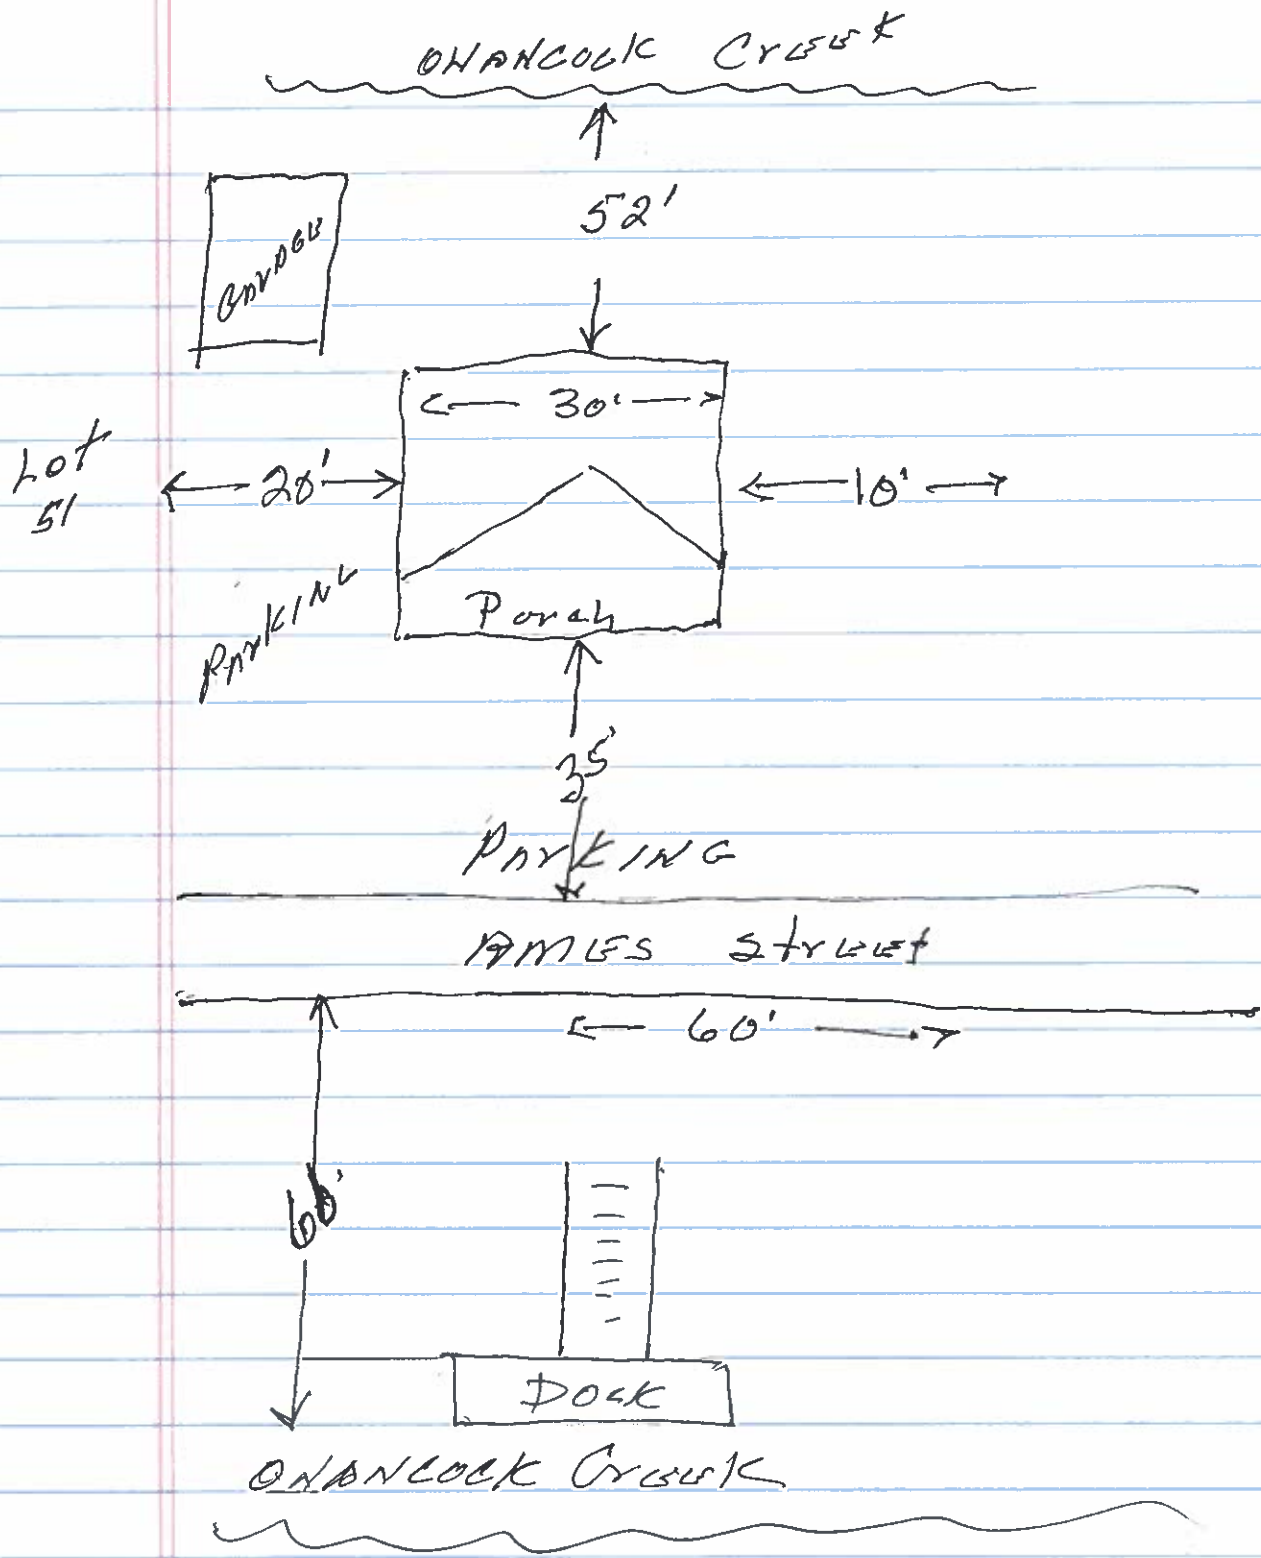 ONANCOCK Creek
52'
GARAGE
30'
Lot
51
20'
10'
PARKING
Porch
35'
PARKING
AMES Street
60'
60'
Dock
ONANCOCK Creek